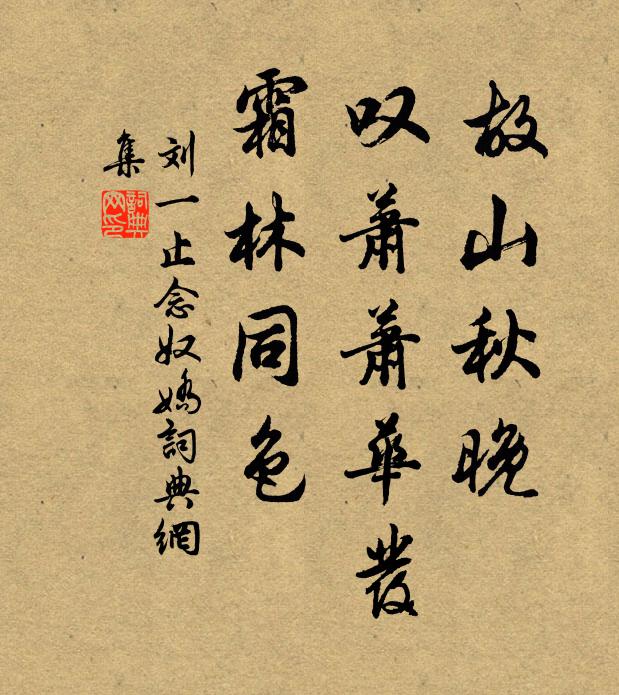 故山秋晚
叹萧萧华发
霜林同色
刘一止念奴娇詞典網
集
詞典
网印